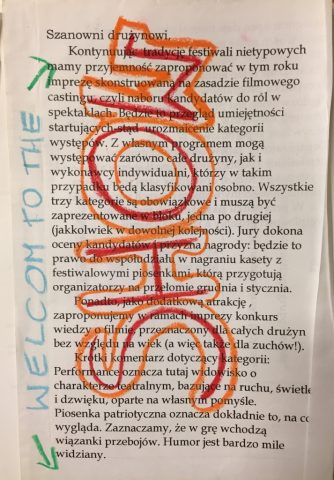 Szanowni drużynowi,
Kontynuując tradycję festiwali nietypowych
mamy przyjemność zaproponować w tym roku
imprezę skonstruowaną na zasadzie filmowego
castingu, czyli naboru kandydatów do ról w
spektaklach. Będzie to przegląd umiejętności
startujących stąd urozmaicenie kategorii
występów. Z własnym programem mogą
występować zarówno całe drużyny, jak i
wykonawcy indywidualni, którzy w takim
przypadku będą klasyfikowani osobno. Wszystkie
trzy kategorie są obowiązkowe i muszą być
zaprezentowane w bloku, jedna po drugiej
(jakkolwiek w dowolnej kolejności). Jury dokona
oceny kandydatów i przyzna nagrody: będzie to
prawo do nagraniu kasety z
festiwalowymi piosenkami, którą przygotują
organizatorzy na przełomie grudnia i stycznia.
Ponadto jako dodatkową atrakcję,
zaproponujemy imprezy konkurs
wiedzy dla całych drużyn
bez względu na wiek (a więc także dla zuchów!).
Krótki komentarz dotyczący kategorii:
Performance oznacza tutaj widowisko o
charakterze teatralnym, bazujące na ruchu, świetle
i dźwięku, oparte na własnym pomyśle.
Piosenka patriotyczna oznacza dokładnie to, na co
wygląda. Zaznaczamy, że w grę wchodzą
wiązanki przebojów. Humor jest bardzo mile
widziany.
WELCOM TO THE
SHOW